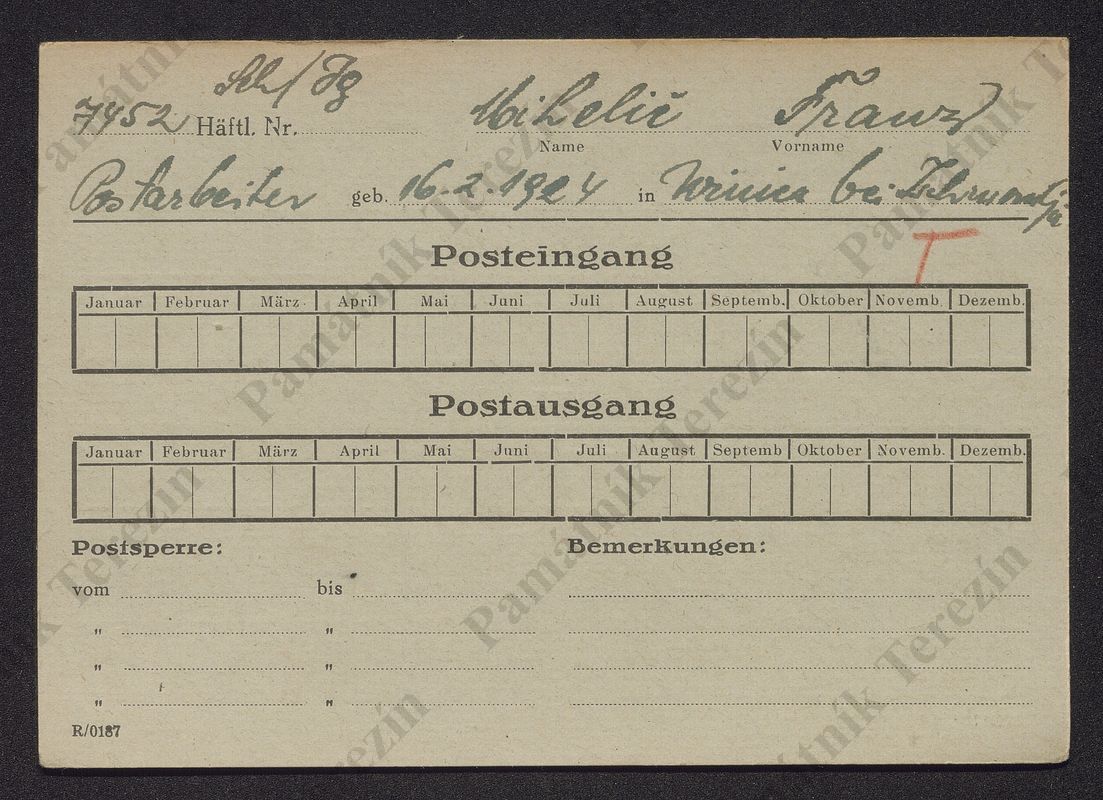 Sch/Jg
7452 Häftl. Nr. Mihelič Franz
Name Vorname
Postarbeiter geb. 16.2.1924 in bei
T
Posteingang
Januar Februar März April Mai Juni Juli August Septemb. Oktober Novemb. Dezemb.
Postausgang
Januar Februar März April Mai Juni Juli August Septemb Oktober Novemb. Dezemb.
Postsperre: Bemerkungen:
vom bis
" "
" "
" "
R/0187
Památník Terezín